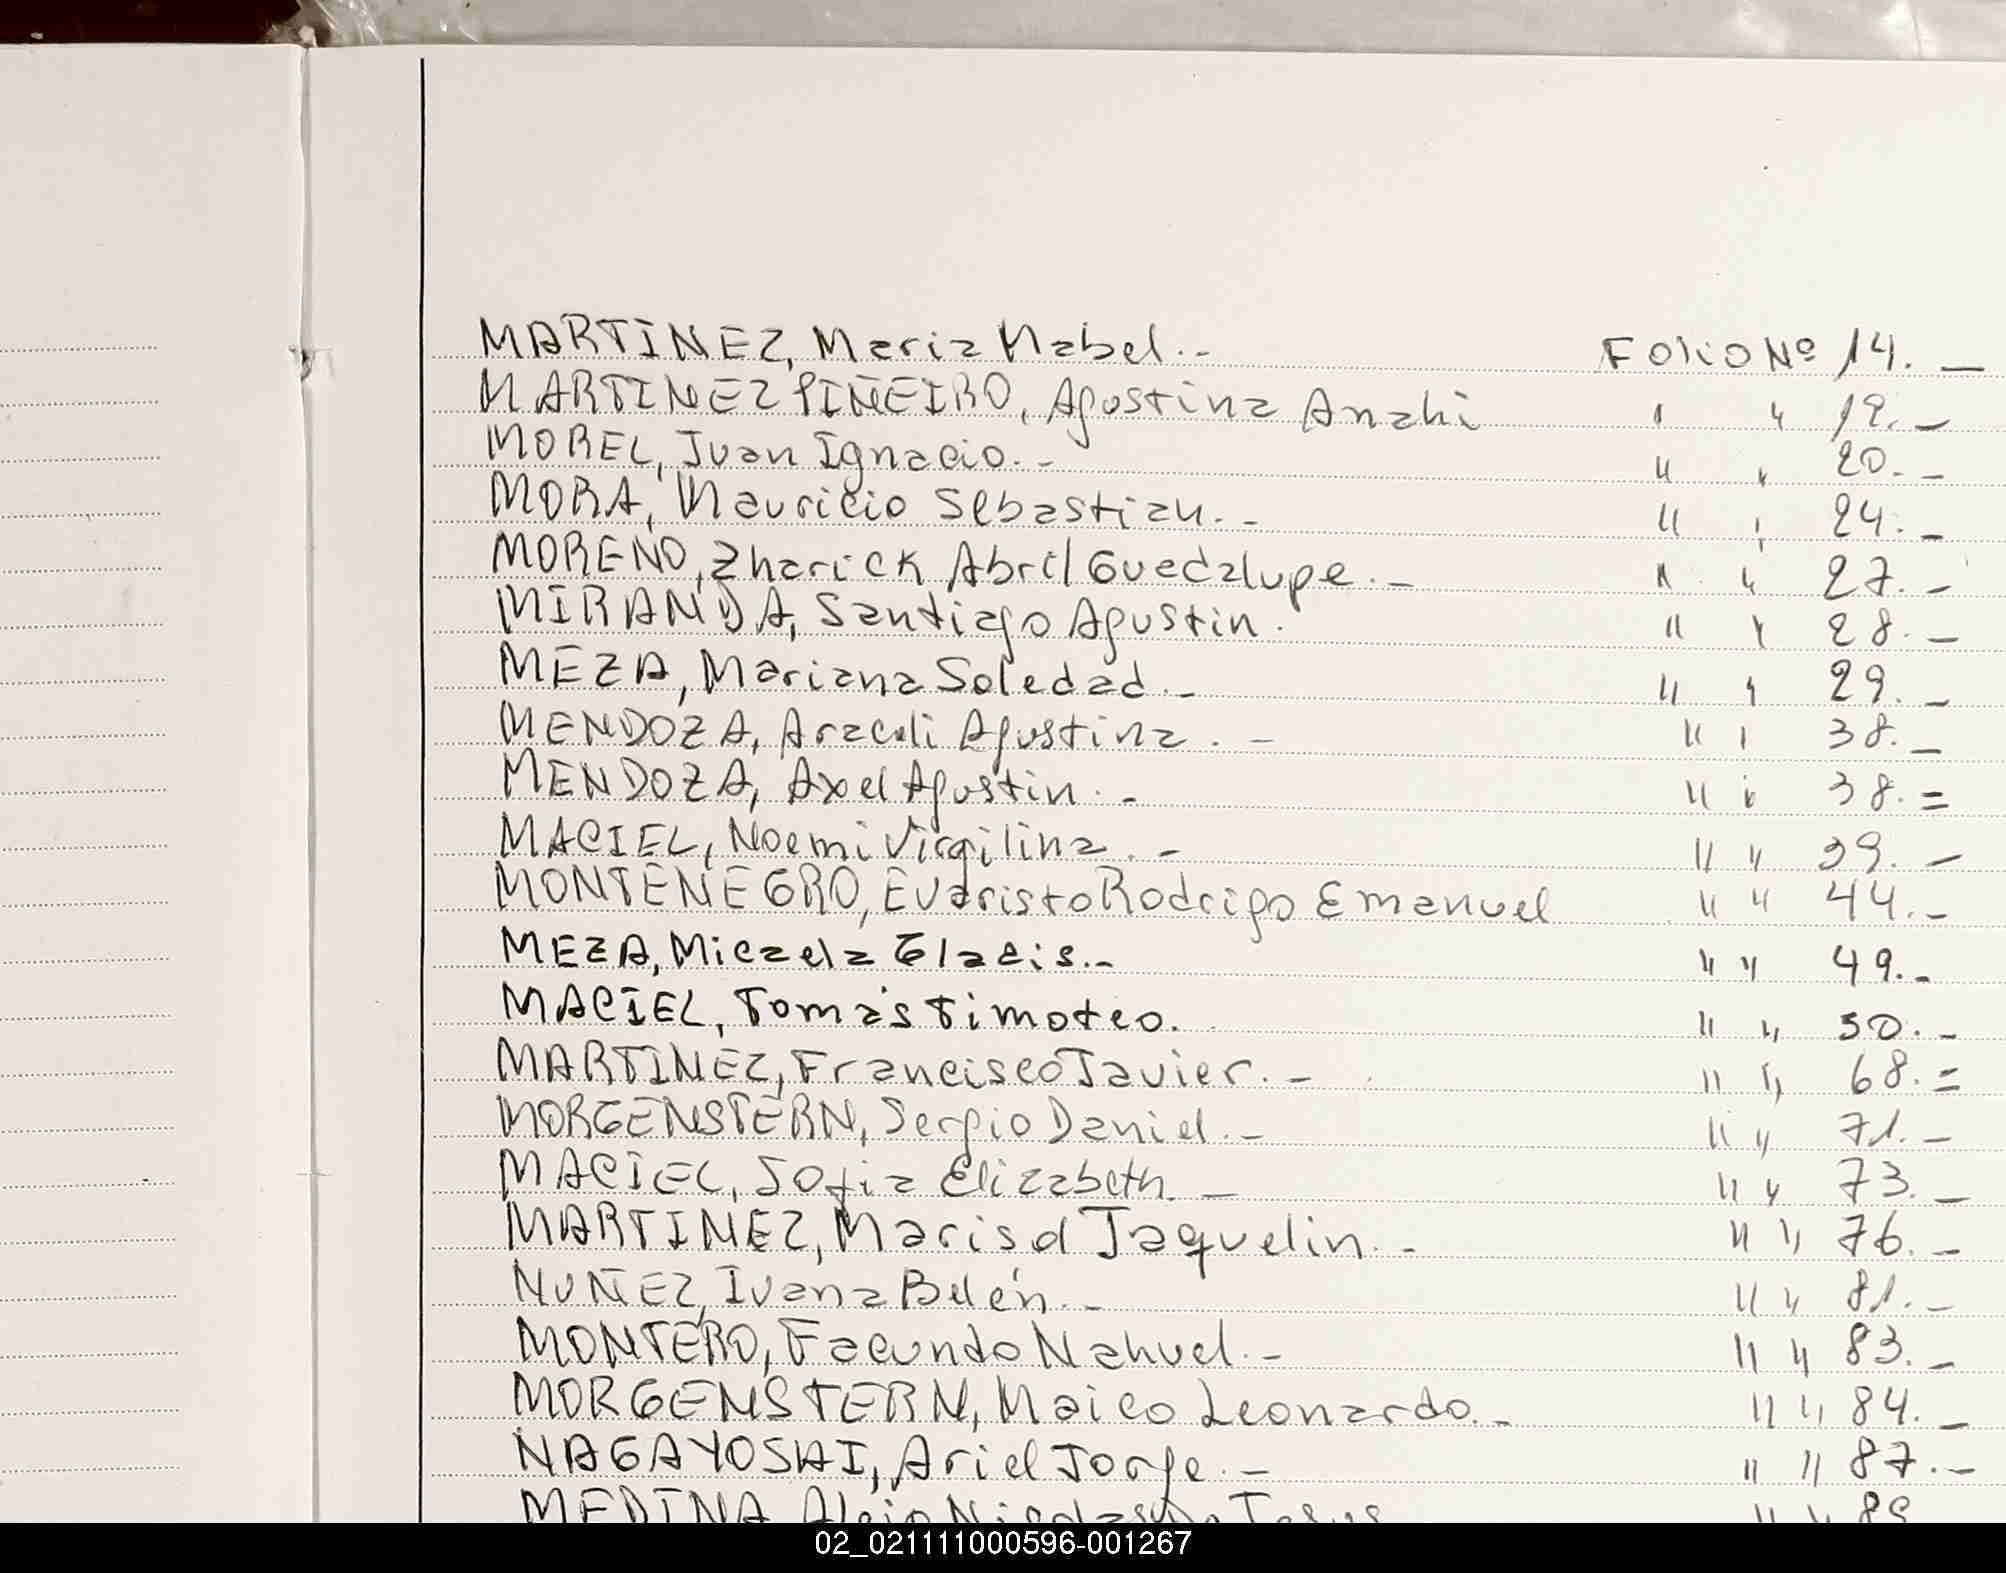 MARTINEZ, Maria Mabel.- Folio Nº 14.-
MARTINEZ PIÑEIRO, Agustina Anahi " " 19.-
MOREL, Juan Ignacio.- " " 20.-
MORA, Mauricio Sebastian.- " " 24.-
MORENO, Zharick Abril Guadalupe.- " " 27.-
MIRANDA, Santiago Agustin. " " 28.-
MEZA, Mariana Soledad.- " " 29.-
MENDOZA, Araceli Agustina.- " " 38.-
MENDOZA, Axel Agustin.- " " 38.=
MACIEL, Noemi Virgilina.- " " 39.-
MONTENEGRO, Evaristo Rodrigo Emanuel " " 44.-
MEZA, Micaela Gladis.- " " 49.-
MACIEL, Tomás Timoteo. " " 50.-
MARTINEZ, Francisco Javier.- " " 68.=
MORGENSTERN, Sergio Daniel.- " " 71.-
MACIEL, Sofia Elizabeth.- " " 73.-
MARTINEZ, Marisol Jaquelin.- " " 76.-
NUÑEZ, Ivana Belén.- " " 81.-
MONTERO, Facundo Nahuel.- " " 83.-
MORGENSTERN, Maico Leonardo.- " " 84.-
NAGAYOSHI, Ariel Jorge.- " " 87.-
MEDINA, Alejo Nicolas " "
02_021111000596-001267